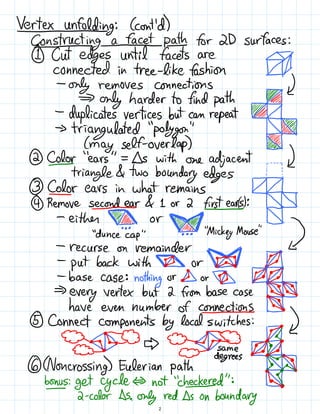 Vertex unfolding: (cont'd)
Constructing a facet path for 2D surfaces:
① Cut edges until facets are
connected in tree-like fashion
- only removes connections
⇒ only harder to find path
- duplicates vertices but can repeat
→ triangulated "polygon"
(may self-overlap)
② Color "ears" = Δs with one adjacent
triangle & two boundary edges
③ Color ears in what remains
④ Remove second ear & 1 or 2 first ear(s):
- either or
"dunce cap" "Mickey Mouse"
- recurse on remainder
- put back with or
- base case: nothing or or
⇒ every vertex but 2 from base case
have even number of connections
⑤ Connect components by local switches:
same
degrees
⑥ (Noncrossing) Eulerian path
bonus: get cycle ⇔ not "checkered":
2-color Δs, only red Δs on boundary
2